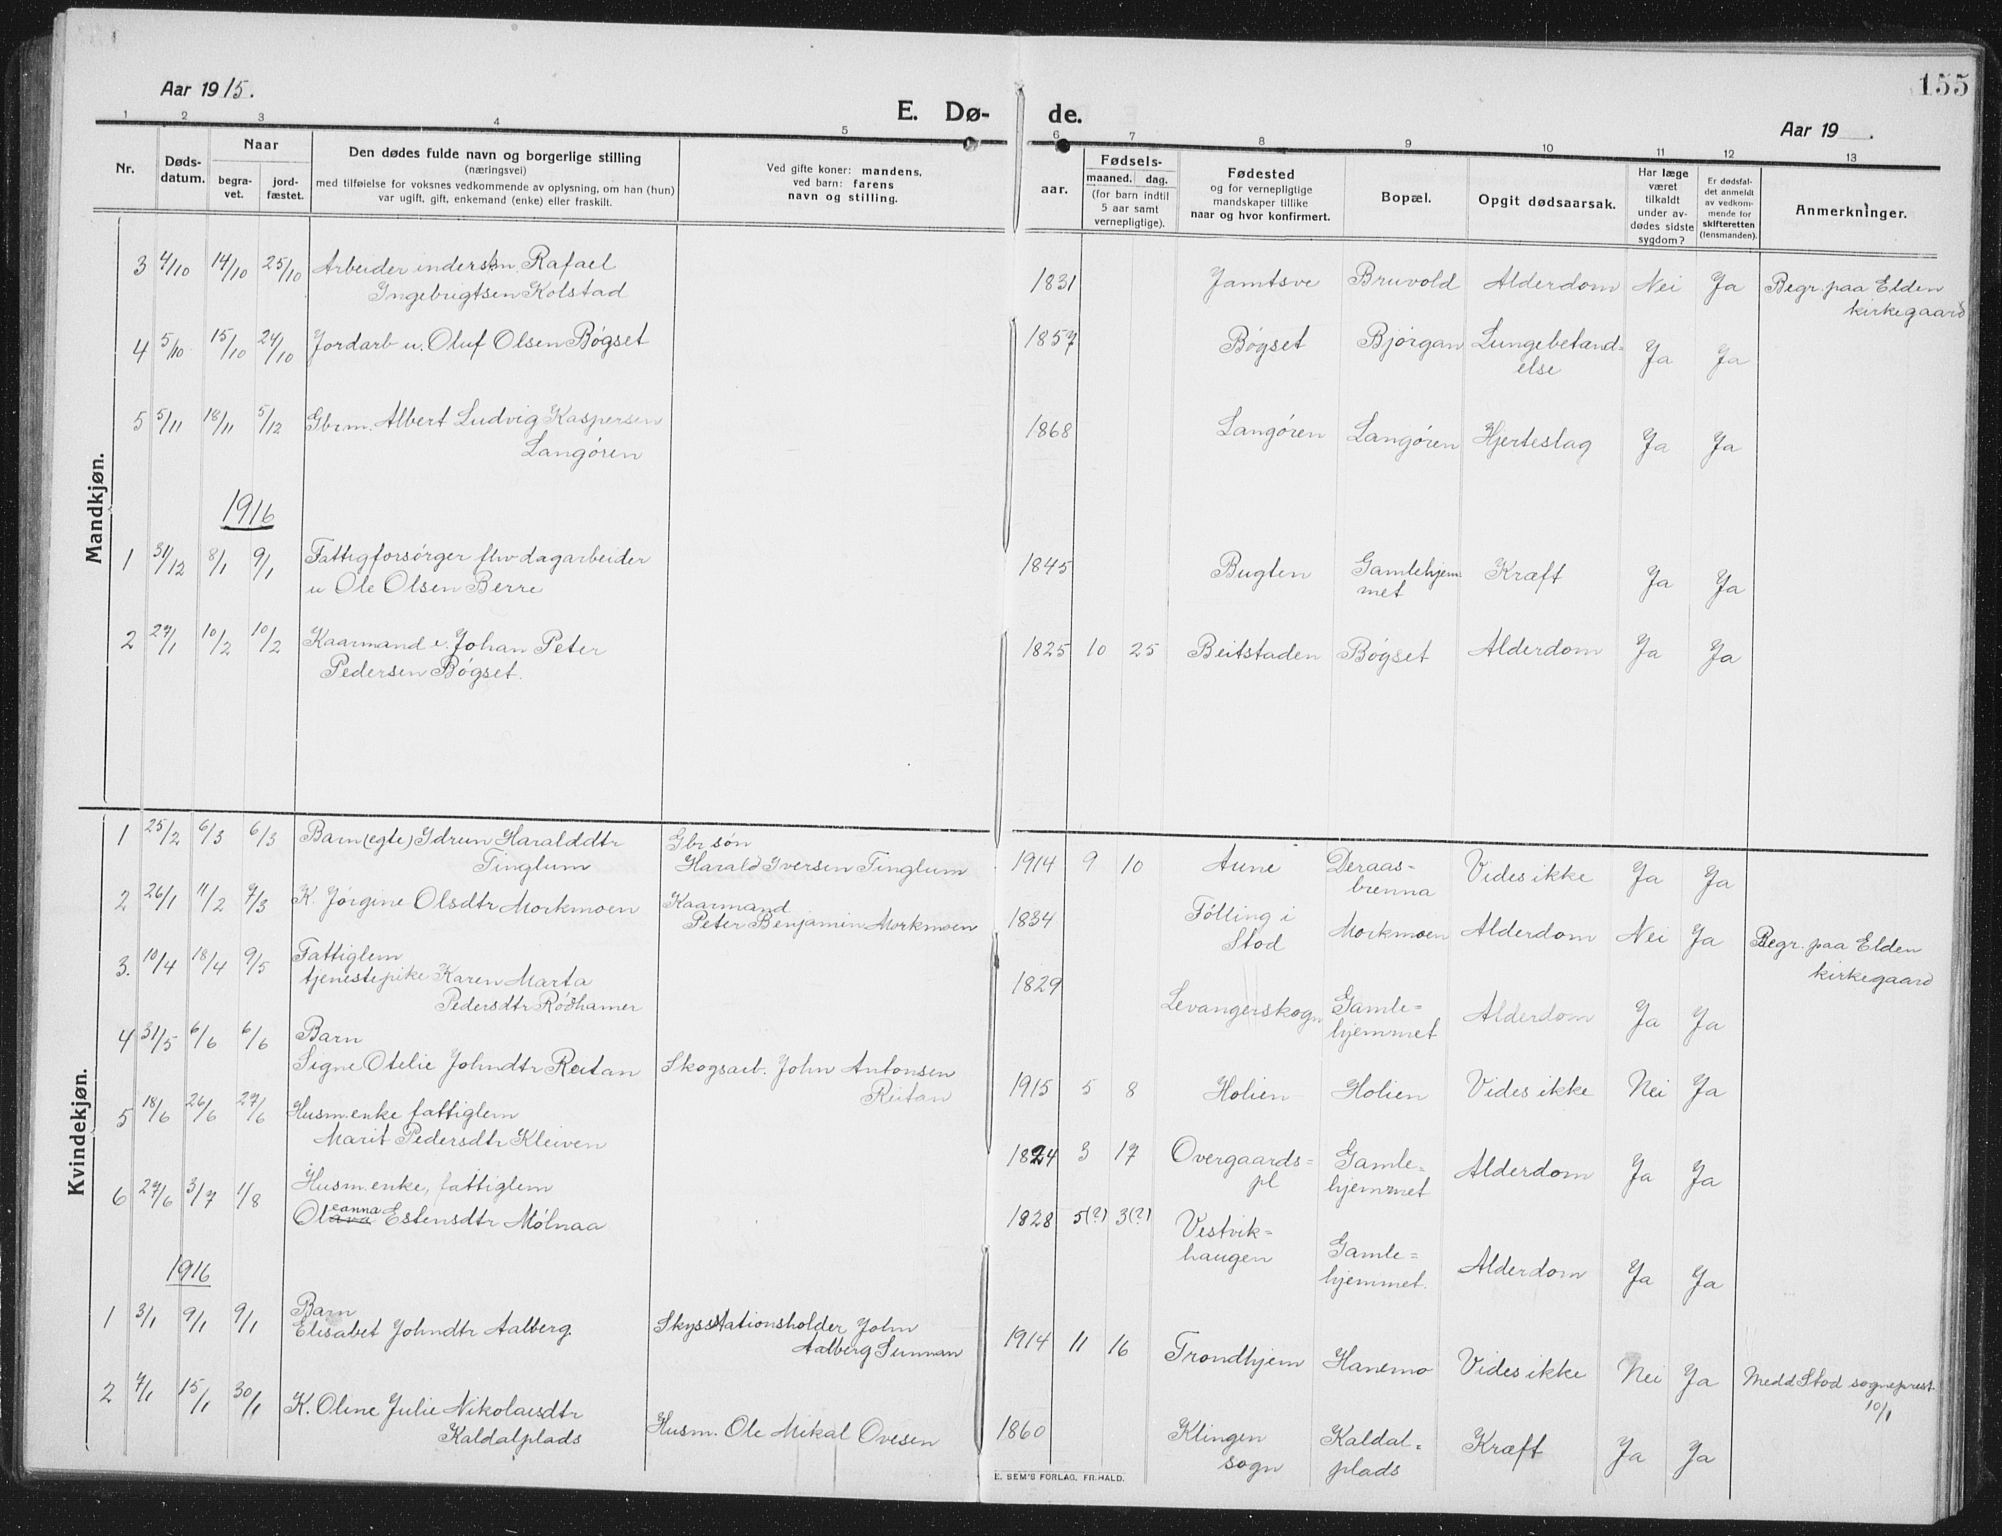 155
Aar 1915.
E. Dø- de.
Aar 19 .
1 2 3 4 5 6 7 8 9 10 11 12 13
Nr.
Døds-
datum.
Naar
begra-
vet.
jord-
fæstet.
Den dødes fulde navn og borgerlige stilling
(næringsvei)
med tilføielse for voksnes vedkommende av oplysning, om han (hun)
var ugift, gift, enkemand (enke) eller fraskilt.
Ved gifte koner: mandens,
ved barn: farens
navn og stilling.
aar.
Fødsels-
maaned. dag.
(for barn indtil
5 aar samt
vernepligtige).
Fødested
og for vernepligtige
mandskaper tillike
naar og hvor konfirmert.
Bopæl.
Opgit dødsaarsak.
Har læge
været
tilkaldt
under av-
dødes sidste
sygdom?
Er dødsfal-
det anmeldt
av vedkom-
mende for
skifteretten
(lensmanden).
Anmerkninger.
Mandkjøn.
3 4/10 14/10 25/10 Arbeider inderskn. Rafael 1831 Jamtsve Bruvold Alderdom Nei Ja Begr. paa Elden
Ingebrigtsen Kolstad kirkegaard
4 5/10 15/10 24/10 Jordarb u. Oluf Olsen Bøgset 1857 Bøgset Bjørgan Lungebetænd= Ja Ja
else
5 5/11 18/11 5/12 Gbrm. Albert Ludvig Kaspersen 1868 Langøren Langøren Hjerteslag Ja Ja
Langøren
1916
1 31/12 8/1 9/1 Fattigforsørger fhv dagarbeider 1845 Bugten Gamlehjem Kræft Ja Ja
u Ole Olsen Berre met
2 27/1 10/2 10/2 Kaarmand e. Johan Peter 1825 10 25 Beitstaden Bøgset Alderdom Ja Ja
Pedersen Bøgset.
Kvindekjøn.
1 25/2 6/3 6/3 Barn (egte) Idrun Haralddtr Gbr søn 1914 9 10 Aune Deraas- Vides ikke Ja Ja
Tinglum Harald Iversen Tinglum brenna
2 26/1 11/2 7/3 K. Jørgine Olsdtr Morkmoen Kaarmand 1834 Følling i Morkmoen Alderdom Nei Ja Begr. paa Elden
Peter Benjamin Morkmoen Stod kirkegaard
3. 10/4 18/4 9/5 Fattiglem 1829 Levangerskogn Gamle= Alderdom Ja Ja
tjenestepike Karen Marta hjemmet
Pedersdtr Rødhamer
4 31/5 6/6 6/6 Barn
Signe Otelie Johndtr Reitan Skogsarb. John Antonsen 1915 5 8 Holien Holien Vides ikke Nei Ja
Reitan
5 18/6 26/6 27/6 Husm.enke fattiglem 1824 3 17 Overgaards- Gamle= Alderdom Ja Ja
Marit Pedersdtr Kleiven pl hjemmet
6 27/6 3/7 1/8 Husm.enke, fattiglem 1828 5(?) 3(?) Vestvik= Gamle= Alderdom Ja Ja
eanna
Olava Estensdtr Mølnaa haugen hjemmet.
1916
1 3/1 9/1 9/1 Barn
Elisabet Johndtr Aalberg. Skysstationsholder John 1914 11 16 Trondhjem Hanemo Vides ikke Nei Ja Medd Stod sogneprest
Aalberg Sunnan 10/1
2 7/1 15/1 30/1 K. Oline Julie Nikolaisdtr Husm. Ole Mikal Ovesen 1860 Klingen Kaldal= Kræft Ja Ja
Kaldalplads sogn plads
E. SEM'S FORLAG, FR.HALD.